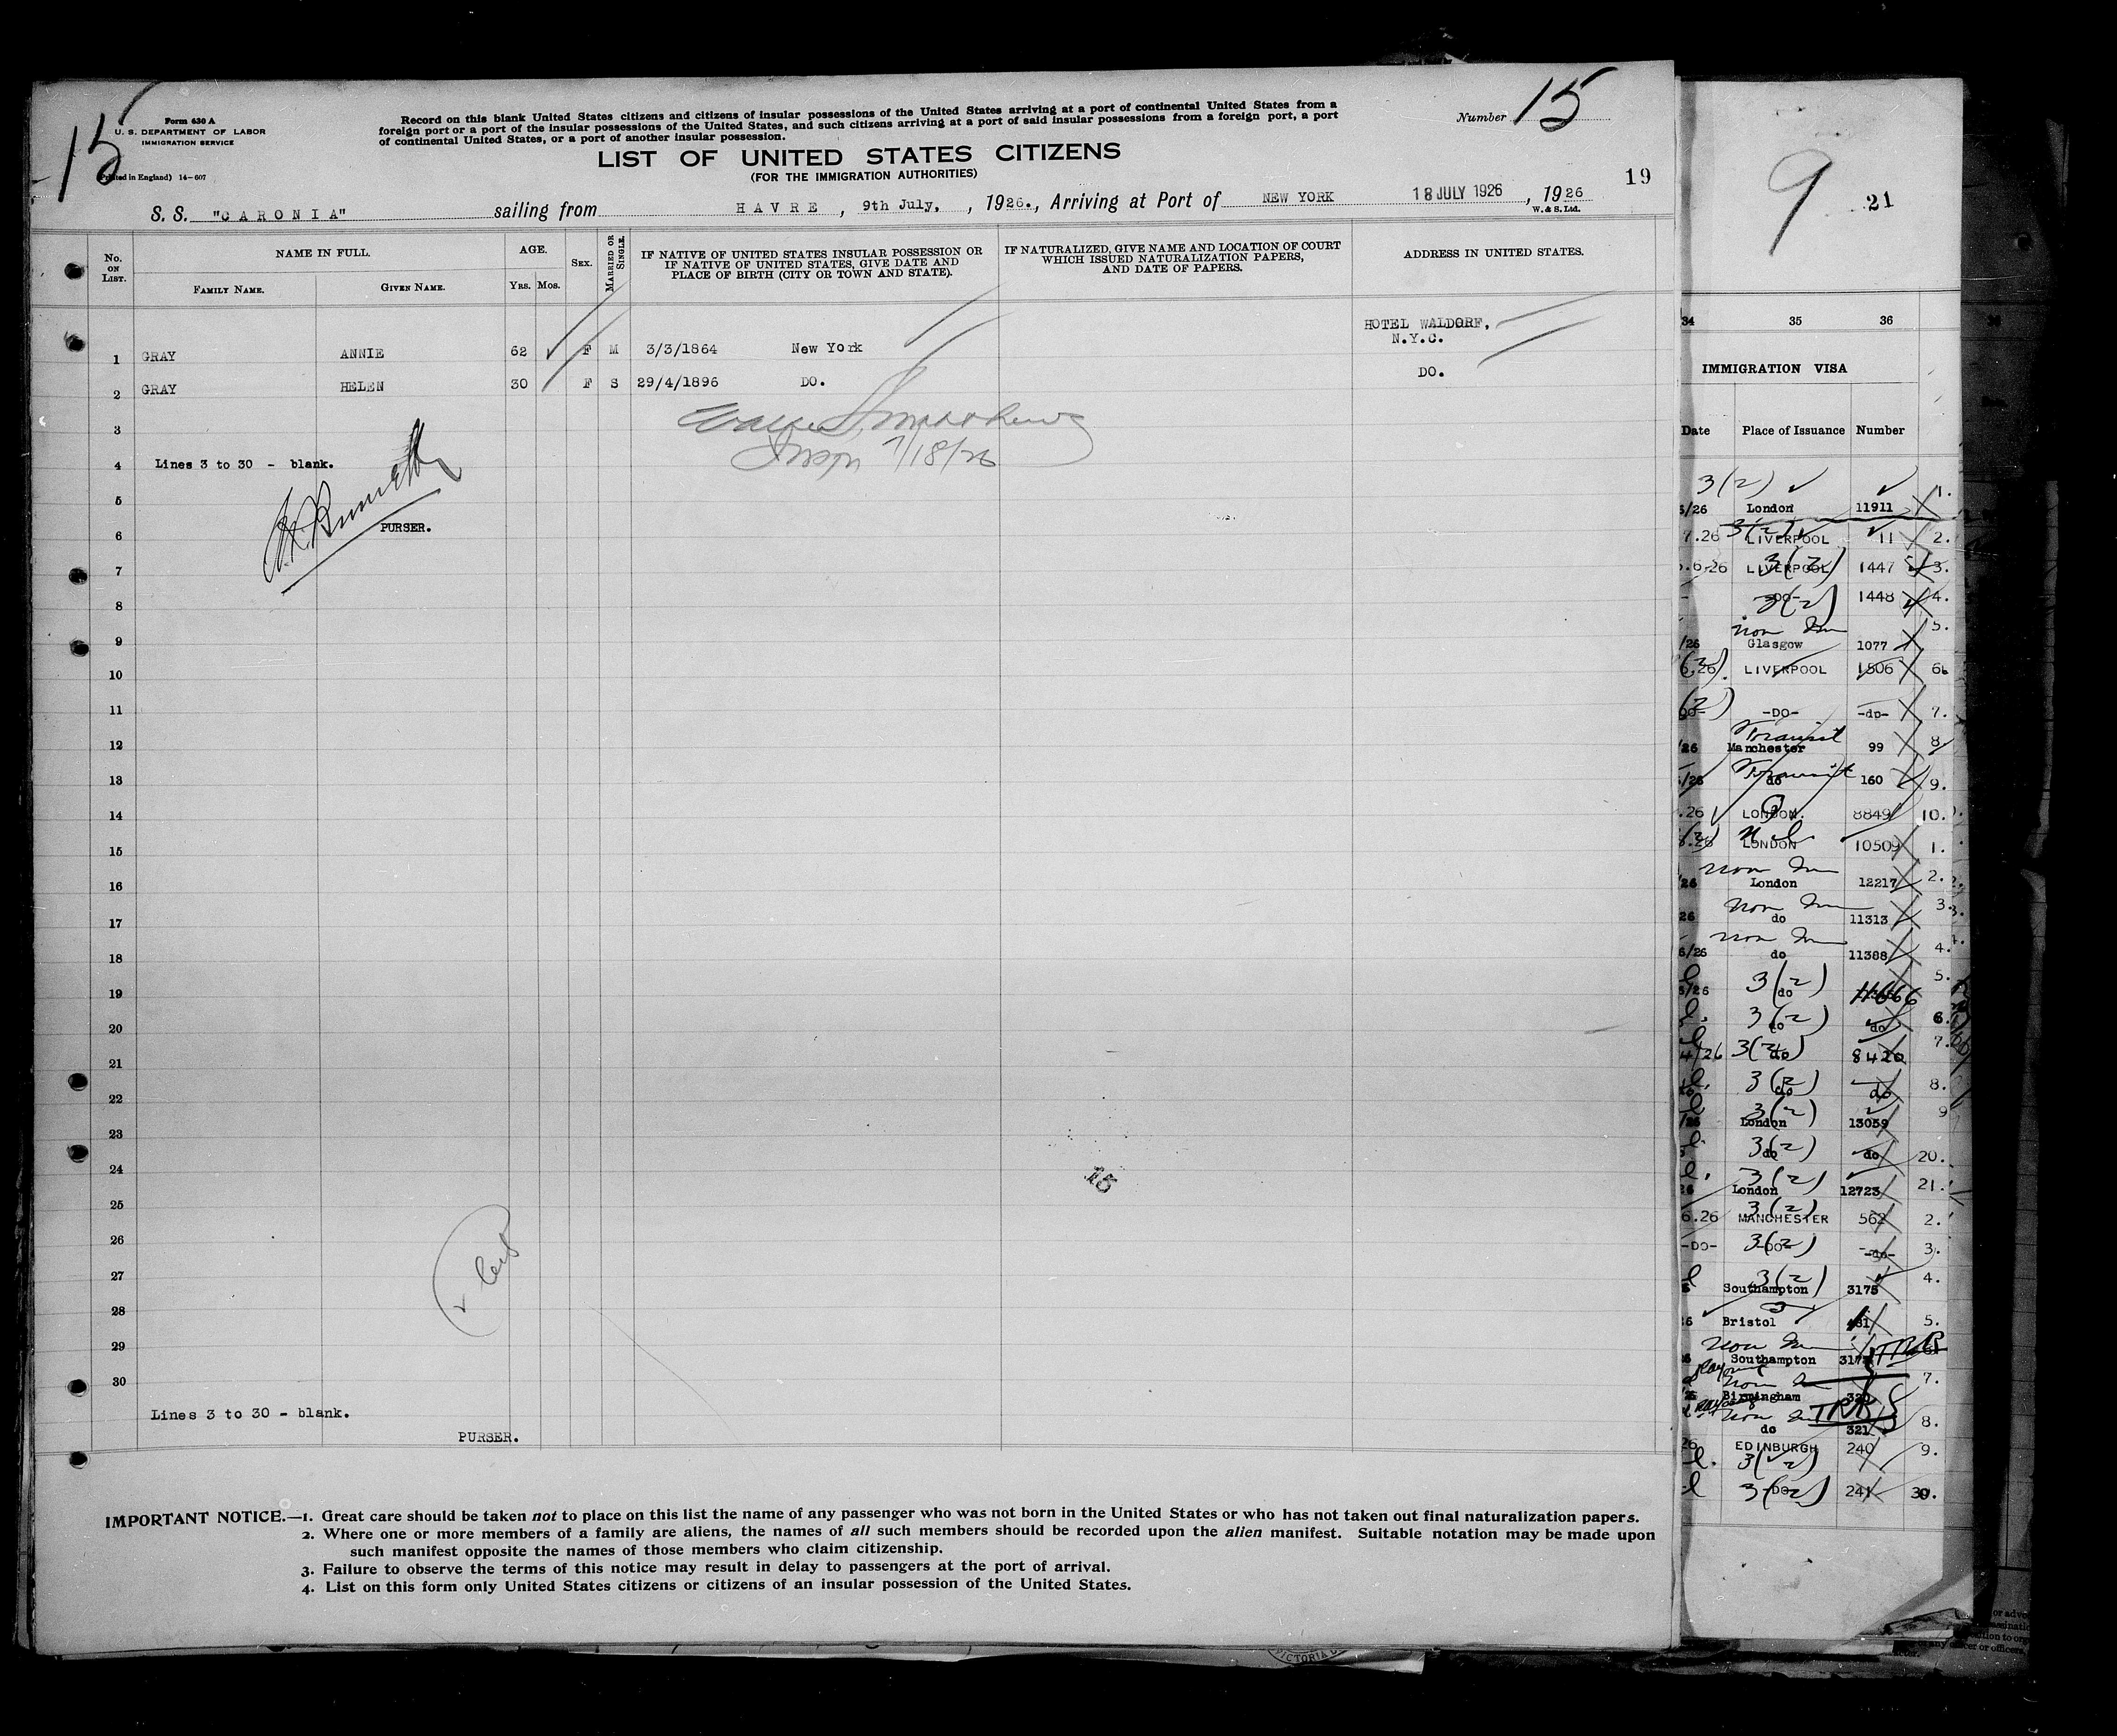 15
Form 630 A
U. S. DEPARTMENT OF LABOR
IMMIGRATION SERVICE
(Printed in England) 14-607
Record on this blank United States citizens and citizens of insular possessions of the United States arriving at a port of continental United States from a
foreign port or a port of the insular possessions of the United States, and such citizens arriving at a port of said insular possessions from a foreign port, a port
of continental United States, or a port of another insular possession.
Number 15
LIST OF UNITED STATES CITIZENS
(FOR THE IMMIGRATION AUTHORITIES)
19
S. S. "CARONIA" sailing from HAVRE, 9th July, , 1926., Arriving at Port of NEW YORK 18 JULY 1926, 1926
W. & S. Ltd.
No. ON LIST.
NAME IN FULL.
FAMILY NAME. GIVEN NAME.
AGE.
YRS. MOS.
SEX.
MARRIED OR SINGLE.
IF NATIVE OF UNITED STATES INSULAR POSSESSION OR
IF NATIVE OF UNITED STATES, GIVE DATE AND
PLACE OF BIRTH (CITY OR TOWN AND STATE).
IF NATURALIZED, GIVE NAME AND LOCATION OF COURT
WHICH ISSUED NATURALIZATION PAPERS,
AND DATE OF PAPERS.
ADDRESS IN UNITED STATES.
HOTEL WALDORF,
1 GRAY ANNIE 62 F M 3/3/1864 New York N.Y.C.
2 GRAY HELEN 30 F S 29/4/1896 DO. DO.
3
4 Lines 3 to 30 - blank.
Insp 7/18/26
5
PURSER.
6
7
8
9
10
11
12
13
14
15
16
17
18
19
20
21
22
23
24
15
25
26
27
28
29
30
Lines 3 to 30 - blank.
PURSER.
IMPORTANT NOTICE.—1. Great care should be taken not to place on this list the name of any passenger who was not born in the United States or who has not taken out final naturalization papers.
2. Where one or more members of a family are aliens, the names of all such members should be recorded upon the alien manifest. Suitable notation may be made upon
such manifest opposite the names of those members who claim citizenship.
3. Failure to observe the terms of this notice may result in delay to passengers at the port of arrival.
4. List on this form only United States citizens or citizens of an insular possession of the United States.
9
21
34 35 36
IMMIGRATION VISA
Date Place of Issuance Number
3(2)
/26 London 11911 1.
3(2)
7.26 LIVERPOOL 11 2.
3(2)
6.26 LIVERPOOL 1447 3.
3(2)
-DO- 1448 4.
non Im 5.
/26 Glasgow 1077
LIVERPOOL 1506 6.
-DO- -do- 7.
Transit
/26 Manchester 99 8.
Transit
do 160 9.
.26 LONDON. 8849 10.
LONDON 10509 1.
non Im
/26 London 12217 2.
non Im
26 do 11313 3.
non Im
6/26 do 11388 4.
3(2) 5.
/26 do 11666
3(2)
do do 6.
3(2) 7.
4/26 do 8420
3(2)
do do 8.
3(2) 9
London 13059
3(2)
do do 20.
3(2)
26 London 12723 21.
3(2)
6.26 MANCHESTER 562 2.
3(2)
-DO- -DO- -do- 3.
3(2) 4.
Southampton 3175
Bristol 5.
non Im
Southampton
non Im 7.
Birmingham 320
non Im 8.
do 321
26 EDINBURGH 240 9.
3(2)
3(2)
-DO- 241 30.
PICTORIA